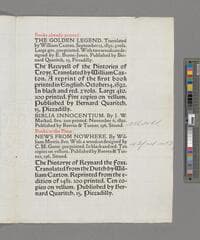 Books already printed.
THE GOLDEN LEGEND. Translated
by William Caxton. September 12, 1892. 3 vols.
Large 4to. 500 printed. With two woodcuts de-
signed by E. Burne-Jones. Published by Ber-
nard Quaritch, 15, Piccadilly.
The Recuyell of the Histories of
Troye. Translated by William Cax-
ton. A reprint of the first book
printed in English. October 4, 1892.
In black and red. 2 vols. Large 4to.
300 printed. Five copies on vellum.
Published by Bernard Quaritch,
15, Piccadilly.
BIBLIA INNOCENTIUM. By J. W.
Mackail. 8vo. 200 printed. November 6, 1892.
Published by Reeves & Turner, 196, Strand.
Books in the Press.
NEWS FROM NOWHERE. By Wil-
liam Morris. 8vo. With a woodcut designed by
C. M. Gere. 300 printed. In black and red. Ten
copies on vellum. Published by Reeves & Tur-
ner, 196, Strand.
The Historye of Reynard the Foxe.
Translated from the Dutch by Wil-
liam Caxton. Reprinted from the e-
dition of 1481. 300 printed. Ten co-
pies on vellum. Published by Ber-
nard Quaritch, 15, Piccadilly.